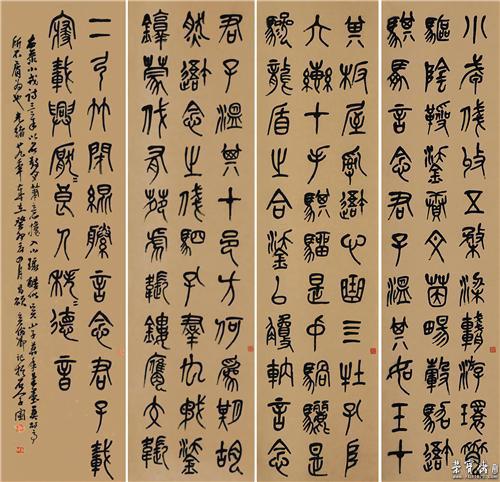 小戎俴收五楘梁輈游環脅
驅陰靷鋈續文茵暢轂駕我
騏馵言念君子溫其如玉在
其板屋亂我心曲三牡孔阜
六轡在手騏騮是中騧驪是
驂龍盾之合鋈以觼軜言念
君子溫其在邑方何為期胡
然我念之俴駟孔群厹矛鋈
錞蒙伐有苑虎韔鏤膺交韔
二弓竹閉緄縢言念君子載
寢載興厭〻良人秩〻德音
右秦小戎詩三章以石鼓文筆意
所不屑為也光緒廿九年歲在癸卯四月昌碩吳俊卿記